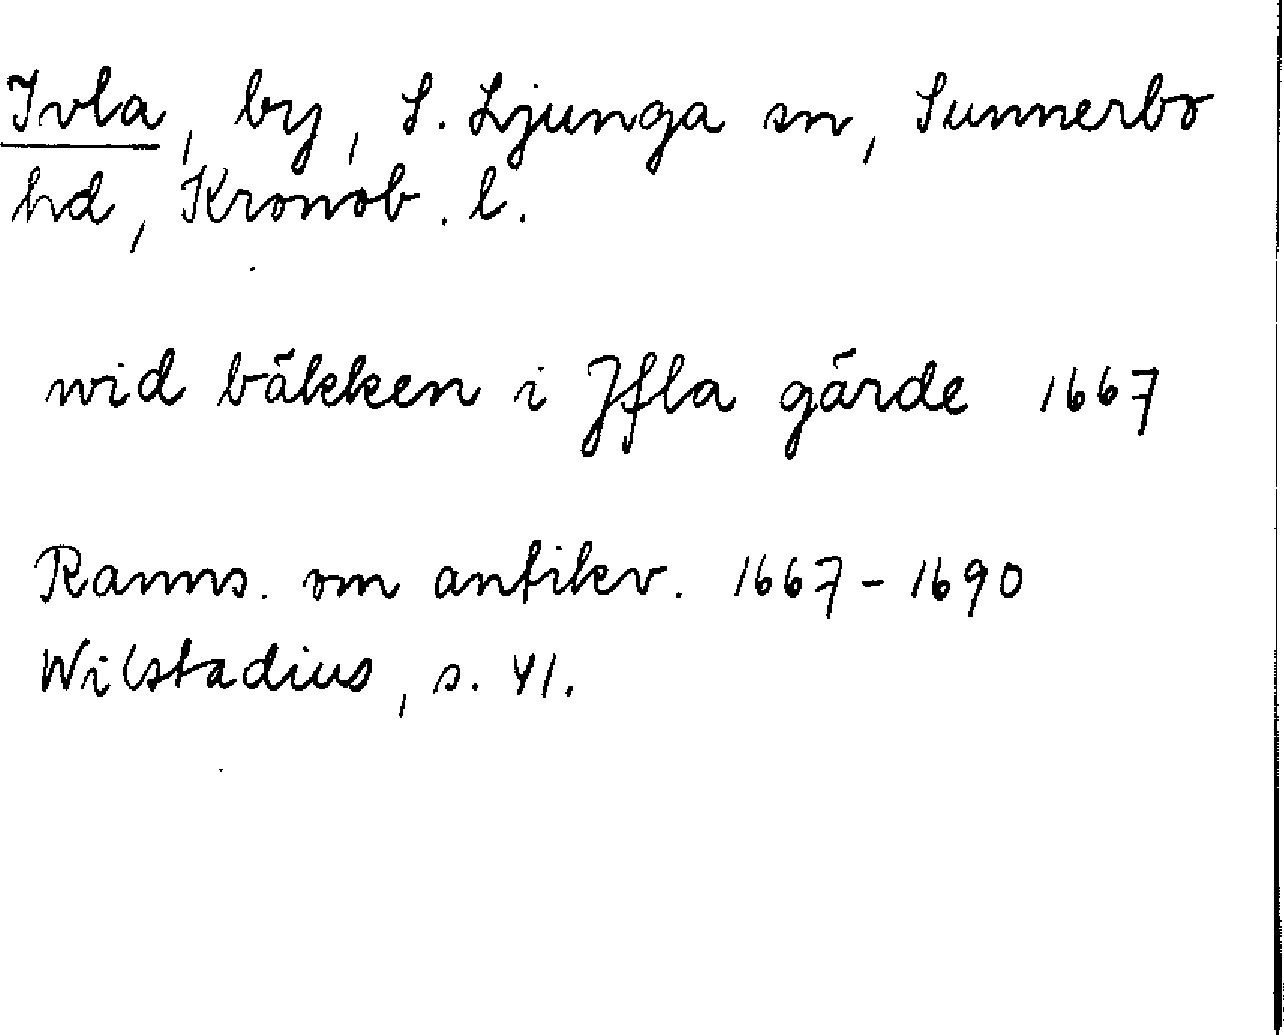 Ivla, by, S. Ljunga sn, Sunnerbo
hd, Kronob. l.
wid bäkken i Jfla gärde 1667
Ranns. om antikv. 1667-1690
Wilstadius, s. 41.